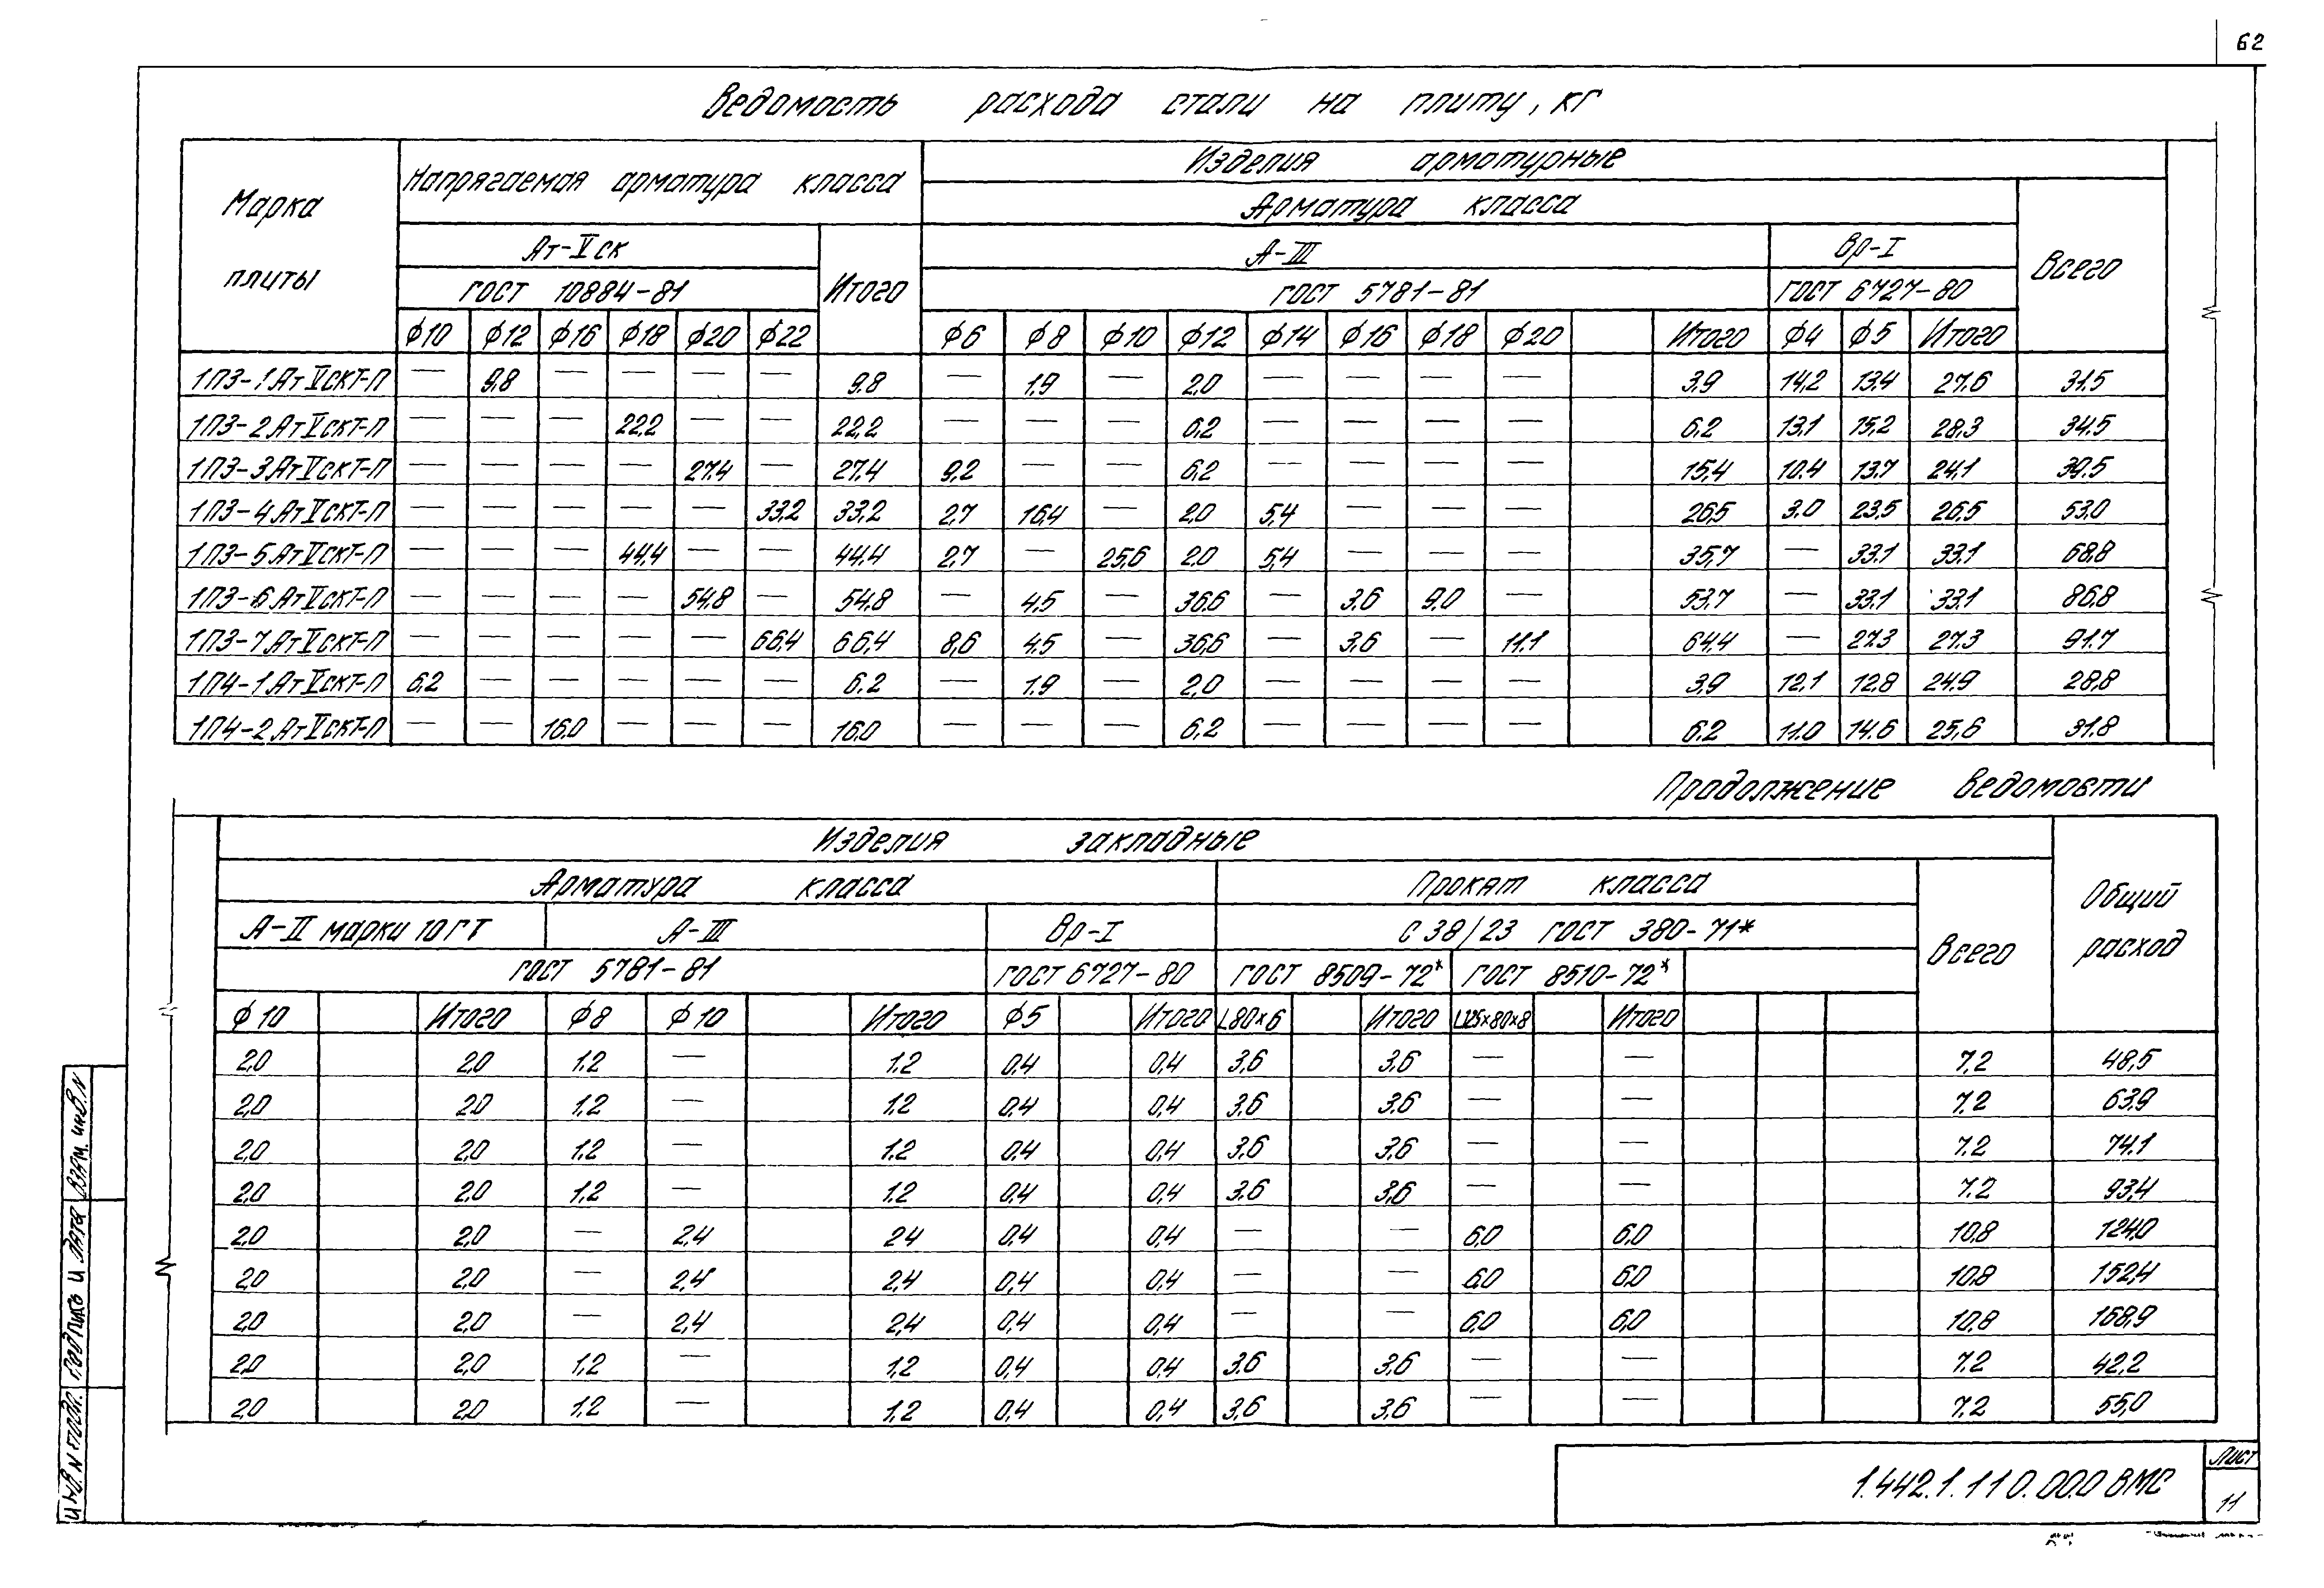 62
Ведомость расхода стали на плиту, кг
Марка плиты
Напрягаемая арматура класса
Изделия арматурные
Арматура класса
Ат-Vск
Итого
А-III
Вр-I
Всего
ГОСТ 10884-81
ГОСТ 5781-81
ГОСТ 6727-80
ϕ10 ϕ12 ϕ16 ϕ18 ϕ20 ϕ22 ϕ6 ϕ8 ϕ10 ϕ12 ϕ14 ϕ16 ϕ18 ϕ20 Итого ϕ4 ϕ5 Итого
1П3-1АтVСКТ-П — 9,8 — — — — 9.8 — 1.9 — 2,0 — — — — 3.9 14,2 13.4 27.6 31.5
1П3-2АтVСКТ-П — — — 22,2 — — 22,2 — — — 6.2 — — — — 6,2 13,1 15,2 28,3 34.5
1П3-3АтVСКТ-П — — — — 27.4 — 27.4 9,2 — — 6,2 — — — — 15,4 10.4 13.7 24,1 39.5
1П3-4АтVСКТ-П — — — — — 33,2 33,2 2,7 16,4 — 2,0 5,4 — — — 26,5 3.0 23,5 26.5 53.0
1П3-5АтVСКТ-П — — — 44,4 — — 44.4 2,7 — 25,6 2.0 5,4 — — — 35,7 — 33.1 33.1 68,8
1П3-6АтVСКТ-П — — — — 54,8 — 54,8 — 4.5 — 36.6 — 3.6 9,0 — 53,7 — 33,1 33.1 86,8
1П3-7АтVСКТ-П — — — — — 66,4 66,4 8,6 4.5 — 36,6 — 3,6 — 11.1 64,4 — 27.3 27.3 91.7
1П4-1АтVСКТ-П 6.2 — — — — — 6.2 — 1.9 — 2,0 — — — — 3,9 12,1 12,8 24.9 28,8
1П4-2АтVСКТ-П — — 16.0 — — — 16.0 — — — 6,2 — — — — 6.2 11.0 14.6 25,6 31.8
Продолжение ведомости
Изделия закладные
Общий расход
Арматура класса
Прокат класса
Всего
А-II марки 10ГТ
А-III
Вр-I
С 38/23 ГОСТ 380-71*
ГОСТ 5781-81
ГОСТ 6727-80
ГОСТ 8509-72*
ГОСТ 8510-72*
ϕ10 Итого ϕ8 ϕ10 Итого ϕ5 Итого L80×6 Итого L125×80×8 Итого
2,0 2,0 1.2 — 1.2 0,4 0,4 3,6 3.6 — — 7.2 48,5
2,0 2,0 1.2 — 1.2 0,4 0,4 3.6 3.6 — — 7.2 63,9
2,0 2,0 1.2 — 1.2 0,4 0,4 3,6 3.6 — — 7.2 74.1
2,0 2,0 1.2 — 1.2 0,4 0,4 3.6 3,6 — — 7.2 93,4
2,0 2,0 — 2,4 2,4 0,4 0,4 — — 6,0 6,0 10,8 124,0
2,0 2,0 — 2,4 2,4 0,4 0,4 — — 6,0 6,0 10.8 152,4
2,0 2,0 — 2,4 2,4 0,4 0,4 — — 6,0 6,0 10,8 168,9
2,0 2,0 1.2 — 1.2 0,4 0,4 3.6 3.6 — — 7.2 42,2
2,0 2,0 1.2 — 1.2 0,4 0,4 3,6 3.6 — — 7.2 55,0
Инв. N подл. Подпись и дата Взам. инв. N
1.442.1.1 1 0.000 ВМС
Лист
11